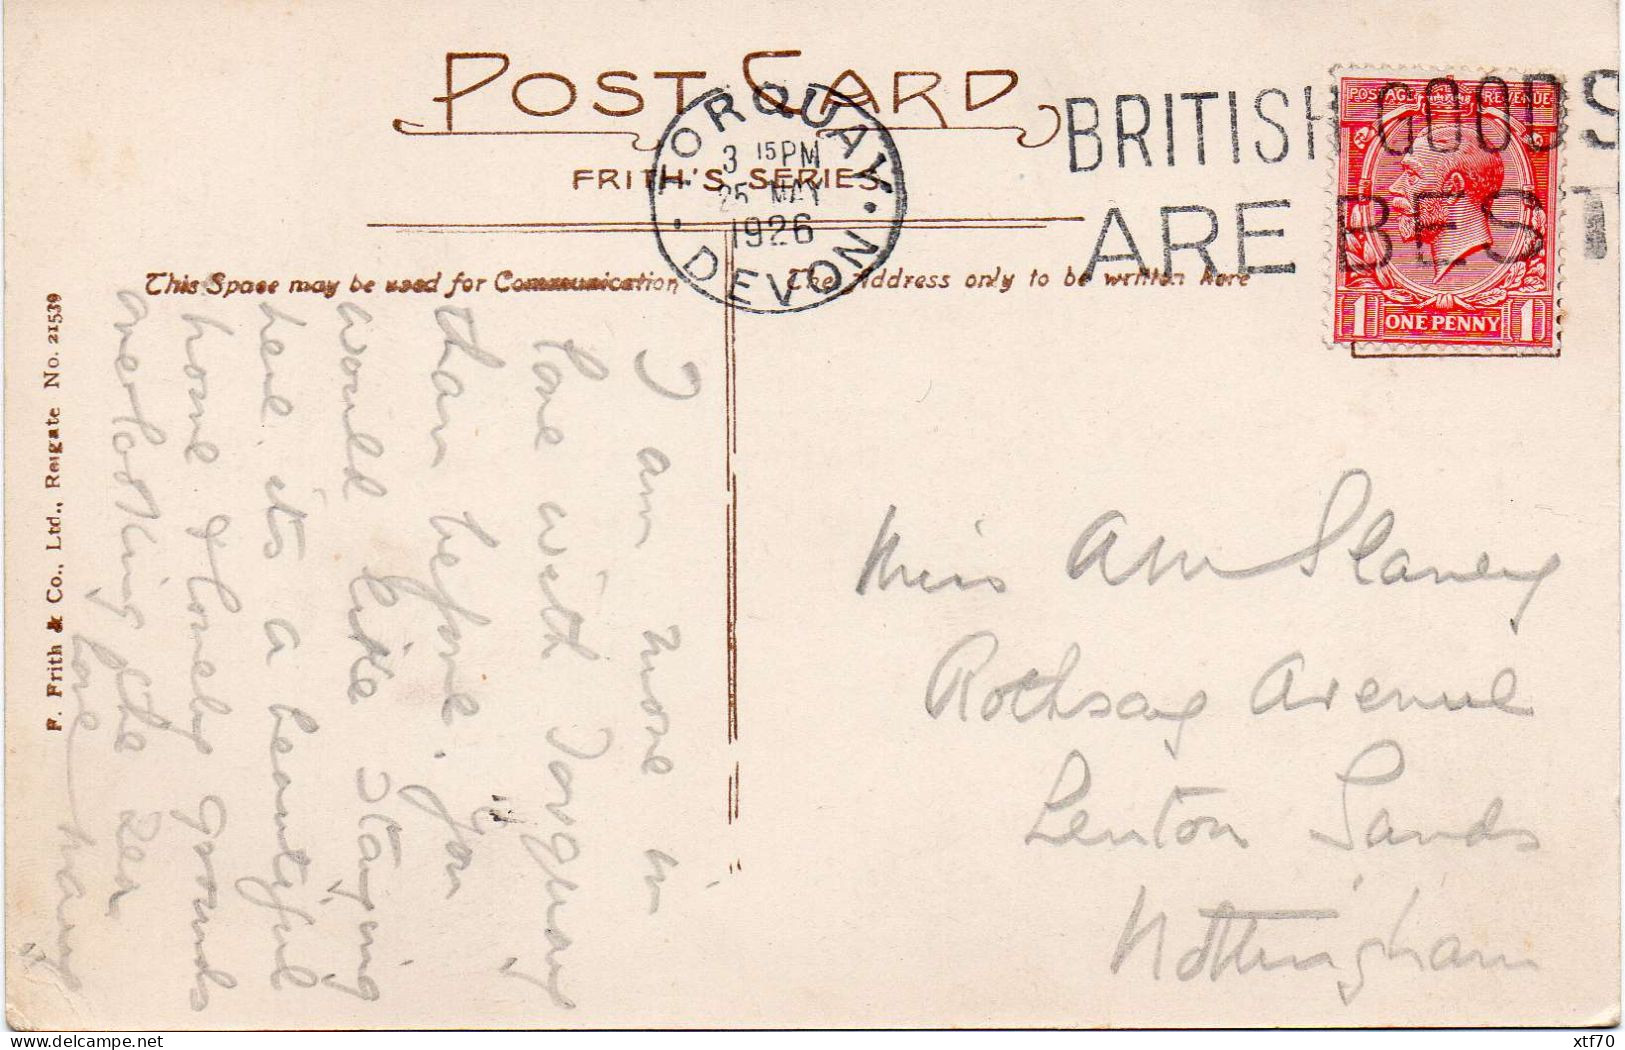 POST CARD
FRITH'S SERIES
TORQUAY
3 15 PM
25 MAY
1926
· DEVON ·
BRITISH GOODS
ARE BEST
POSTAGE REVENUE
1 ONE PENNY 1
This Space may be used for Communication
The Address only to be written here
F. Frith & Co., Ltd., Reigate No. 21539
I am more in
love with Torquay
than before. You
would like staying
here its a beautiful
home & lovely grounds
overlooking the sea
love
Miss A M Slaney
Rothsay Avenue
Lenton Sands
Nottingham
xtf70